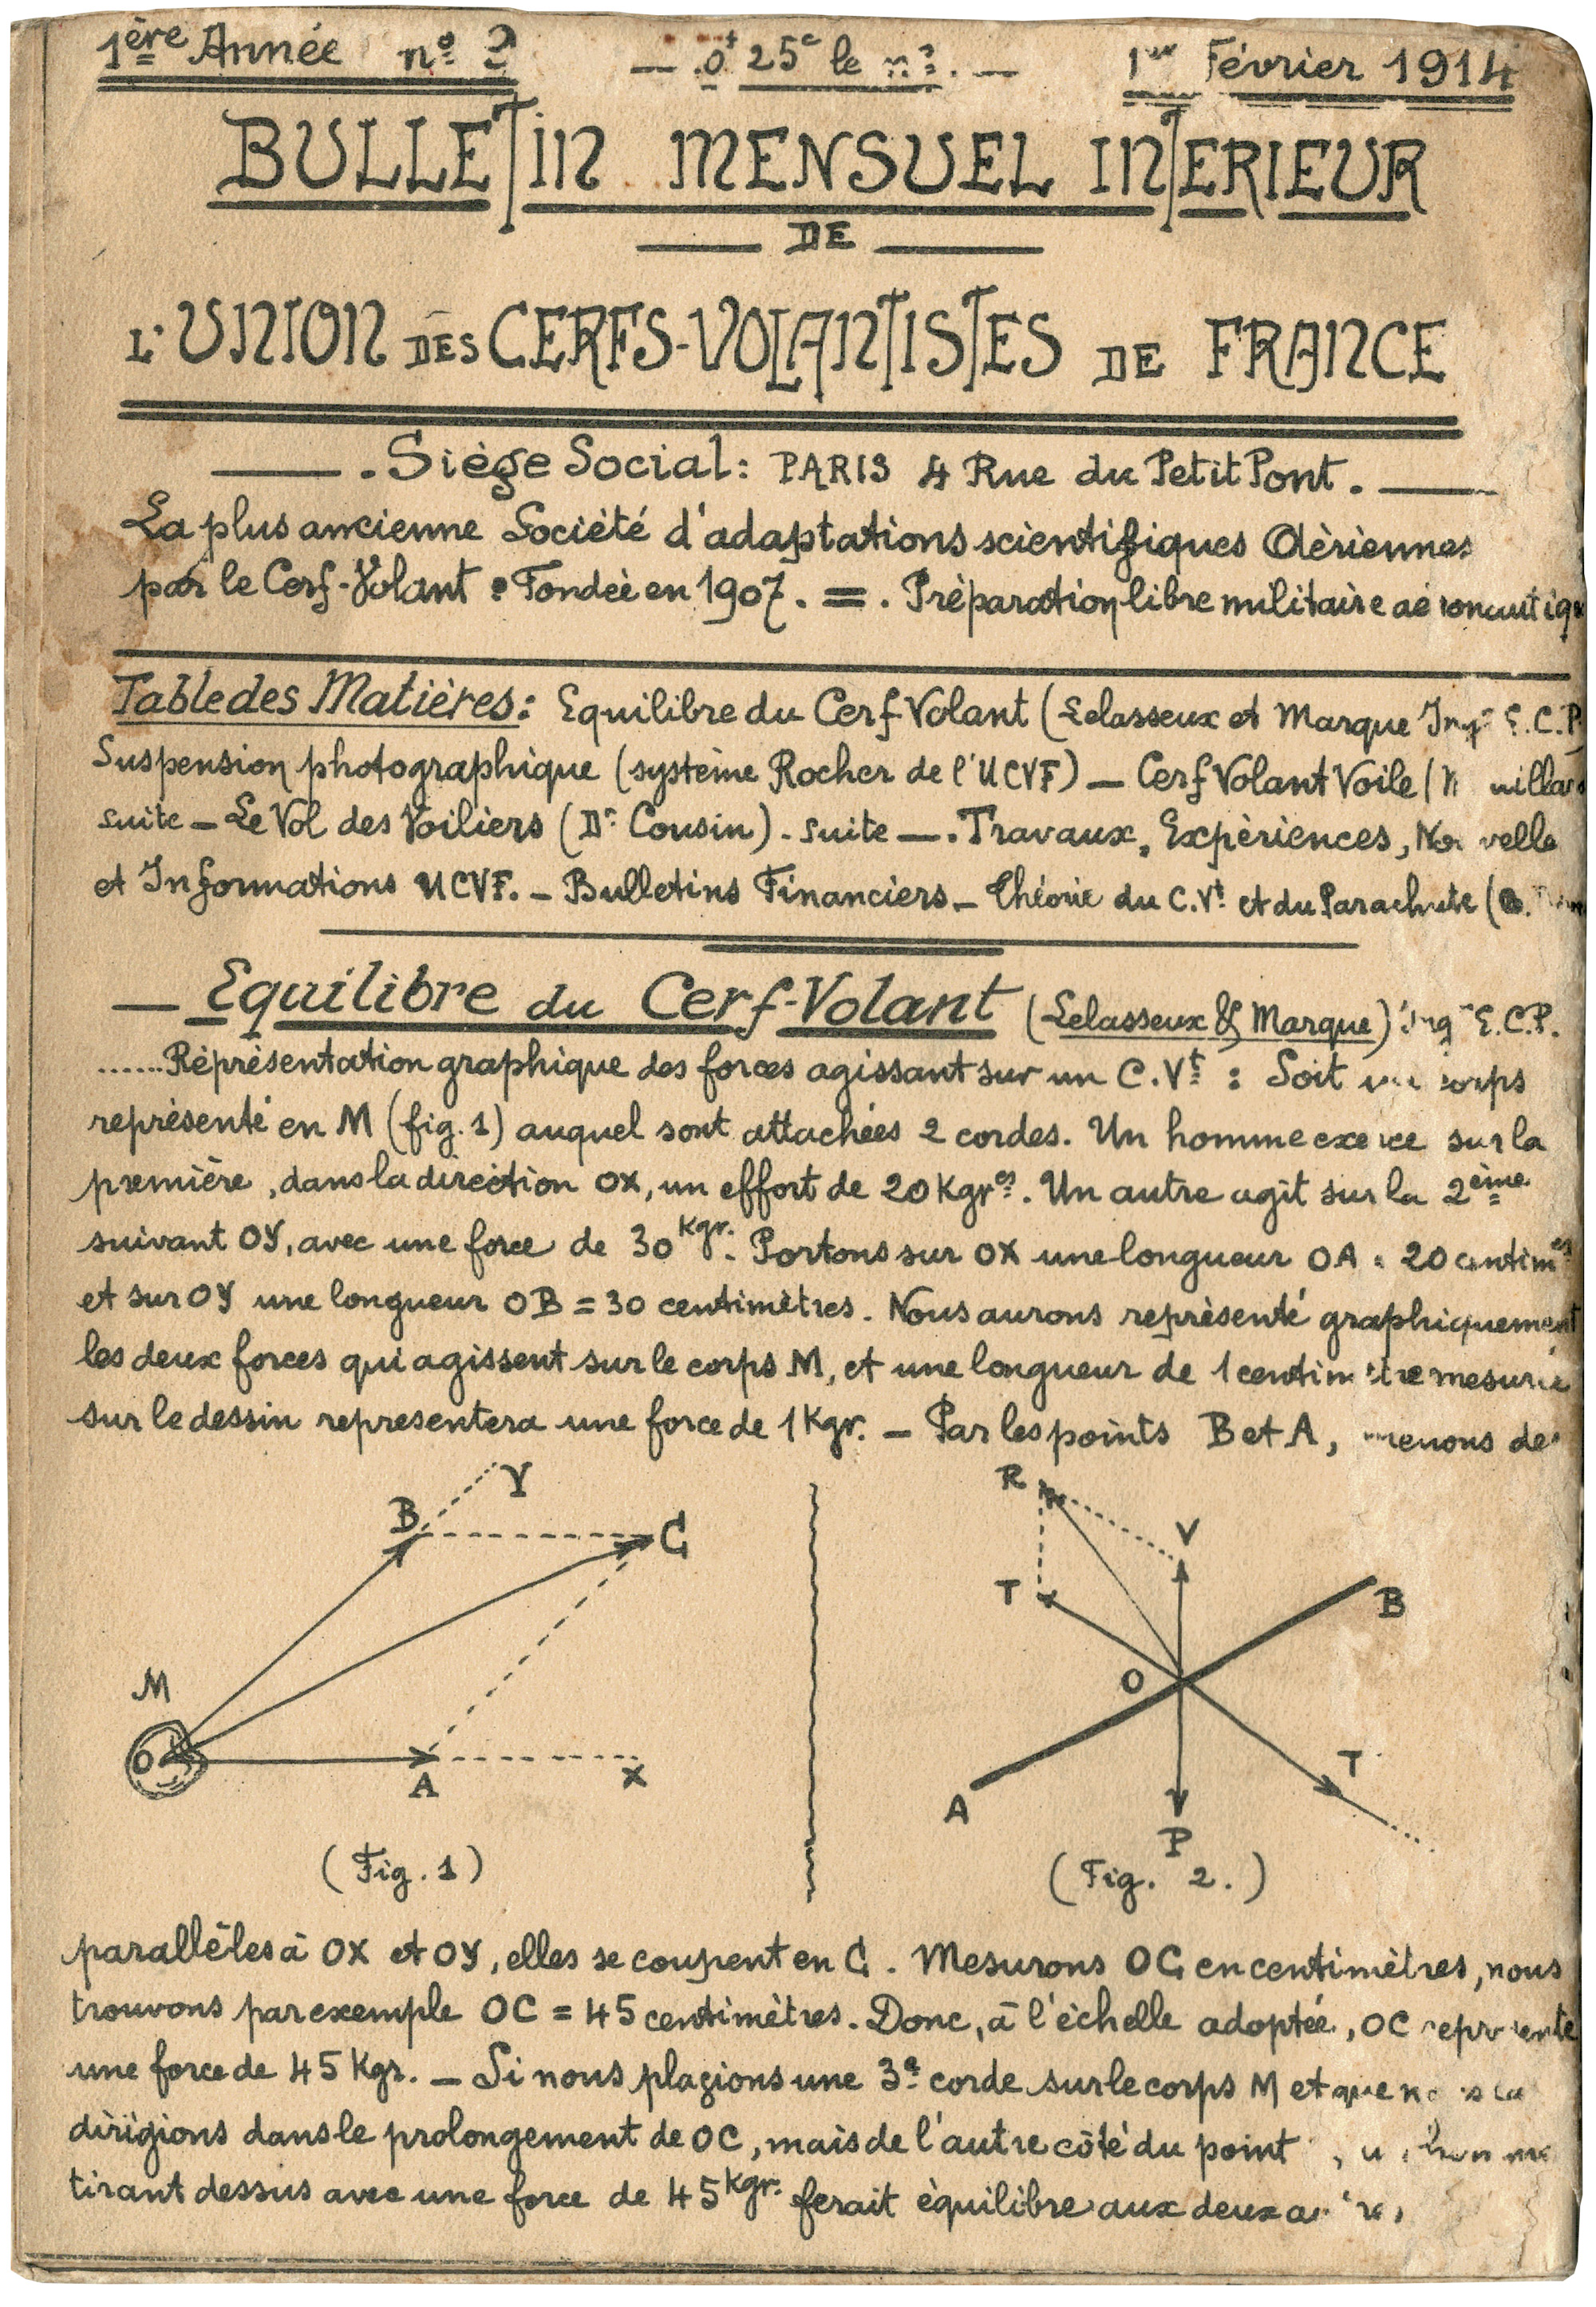 1ère Année nº 2 — 0f 25c le nº. — 1er Février 1914
BULLETIN MENSUEL INTERIEUR
DE
L'UNION DES CERFS-VOLANTISTES DE FRANCE
. Siège Social : PARIS 4 Rue du Petit Pont .
La plus ancienne Société d'adaptations scientifiques Aériennes
par le Cerf-Volant : Fondée en 1907 . = . Préparation libre militaire
Table des Matières : Equilibre du Cerf Volant (Lelasseux et Marque Ingrs E.C.P.
Suspension photographique (système Rocher de l'UCVF) — Cerf Volant Voile (
suite — Le Vol des Voiliers (Dr Cousin) - suite — . Travaux, Expériences,
et Informations UCVF. — Bulletins Financiers — Théorie du C.Vt et du Parachute (
— Equilibre du Cerf-Volant (Lelasseux & Marque) Ingrs E.C.P.
...... Réprésentation graphique des forces agissant sur un C.Vt : Soit un corps
représenté en M (fig. 1) auquel sont attachées 2 cordes. Un homme exerce sur la
première, dans la direction OX, un effort de 20 Kgres. Un autre agit sur la 2ème
suivant OY, avec une force de 30 Kgr. Portons sur OX une longueur OA = 20 centimes
et sur OY une longueur OB = 30 centimètres. Nous aurons représenté graphiquement
les deux forces qui agissent sur le corps M, et une longueur de 1 centimètre mesurée
sur le dessin representera une force de 1 Kgr. — Par les points B et A, menons des
B Y C M O A X
R V T B O A T P
(Fig. 1) (Fig. 2.)
parallèles à OX et OY, elles se coupent en C. Mesurons OC en centimètres, nous
trouvons par exemple OC = 45 centimètres. Donc, à l'échelle adoptée, OC représente
une force de 45 Kgr. — Si nous plaçions une 3e corde sur le corps M et que
dirigions dans le prolongement de OC, mais de l'autre côté du point
tirant dessus avec une force de 45 Kgr. ferait équilibre aux deux